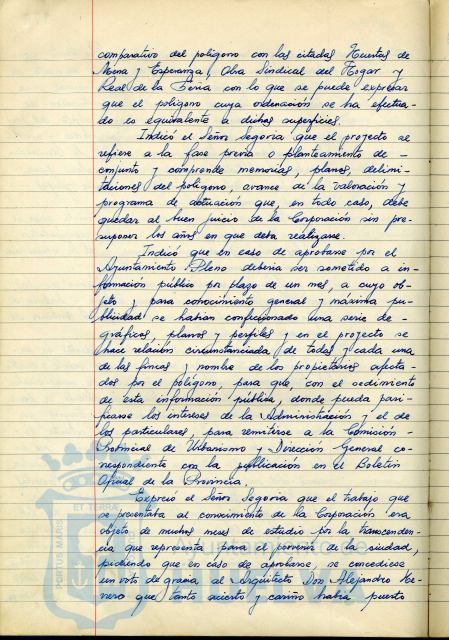 comparativo del polígono con las citadas Huertas de
Mena y Esperanza, Obra Sindical del Hogar y
Real de la Feria con lo que se puede expresar
que el polígono cuya ordenación se ha efectua-
do es equivalente a dichas superficies.
Indicó el Señor Segovia que el proyecto se
refiere a la fase previa o planteamiento de -
conjunto y comprende memorias, planes, delimi-
taciones del polígono, avance de la valoración y
programa de actuación que, en todo caso, debe
quedar al buen juicio de la Corporación sin pre-
suponer los años en que deba realizarse.
Indicó que en caso de aprobarse por el
Ayuntamiento Pleno debería ser sometido a in-
formación público por plazo de un mes, a cuyo ob-
jeto y para conocimiento general y máxima pu-
blicidad se habían confeccionado una serie de -
gráficos, planos y perfiles y en el proyecto se
hace relación circunstanciada de todas y cada una
de las fincas y nombre de los propietarios afecta-
dos por el polígono, para que, con el sedimiento
de esta información pública, donde pueda
los intereses de la Administración y el de
los particulares, para remitirse a la Comisión -
Provincial de Urbanismo y Dirección General co-
rrespondiente con la publicación en el Boletín
Oficial de la Provincia.
Expresó el Señor Segovia que el trabajo que
se presentaba al conocimiento de la Corporación era
objeto de muchos meses de estudio por la trascenden-
cia que representa para el porvenir de la ciudad,
pidiendo que en caso de aprobarse, se concediese
un voto de gracia al Arquitecto Don Alejandro He-
rrero que tanto acierto y cariño había puesto
ET TERRAE
PORTUS MARIS